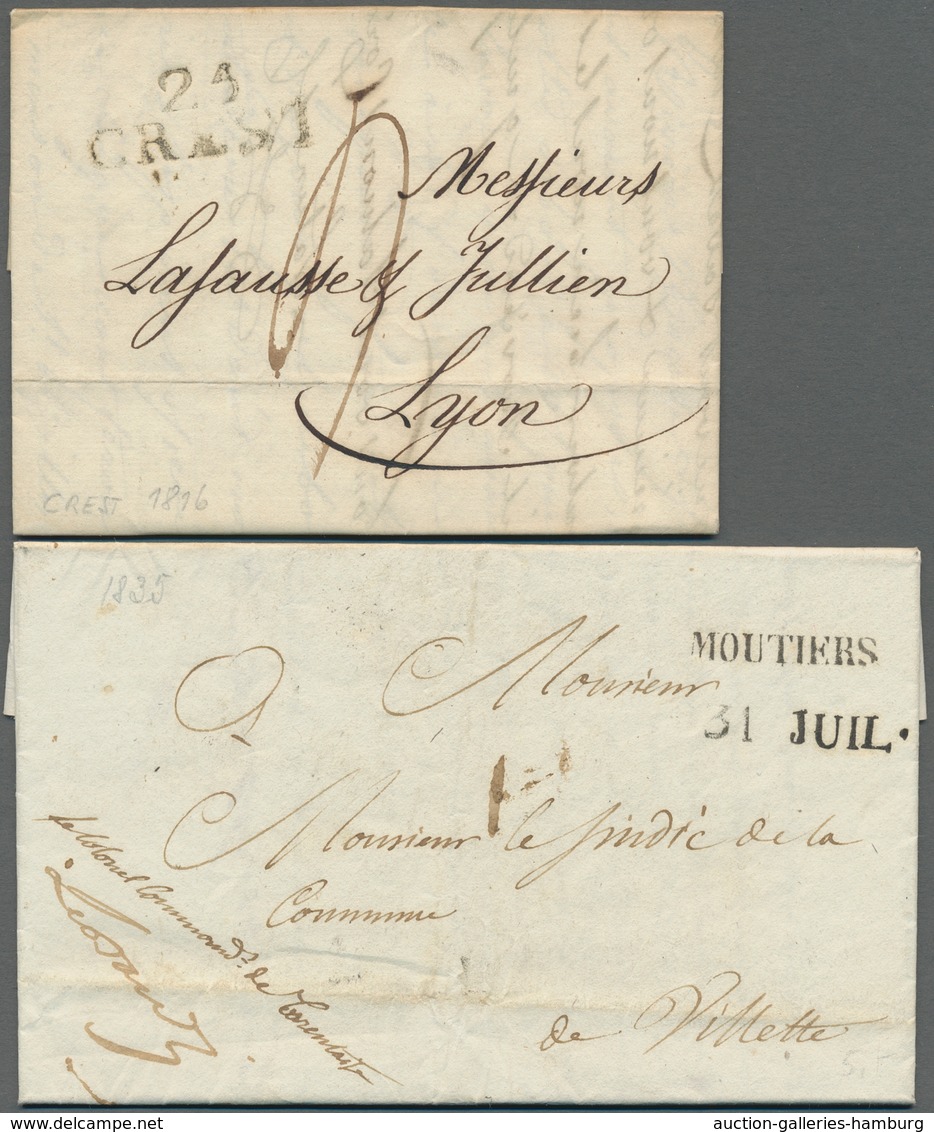 24
CREST
Messieurs
Lafausse & Jullien
Lyon
CREST 1816
1835
MOUTIERS
31 JUIL.
A Monsieur
Monsieur le sindic de la
Commune
de Villette
le Colonel Command.t de Tarentaise
auction-galleries-hamburg